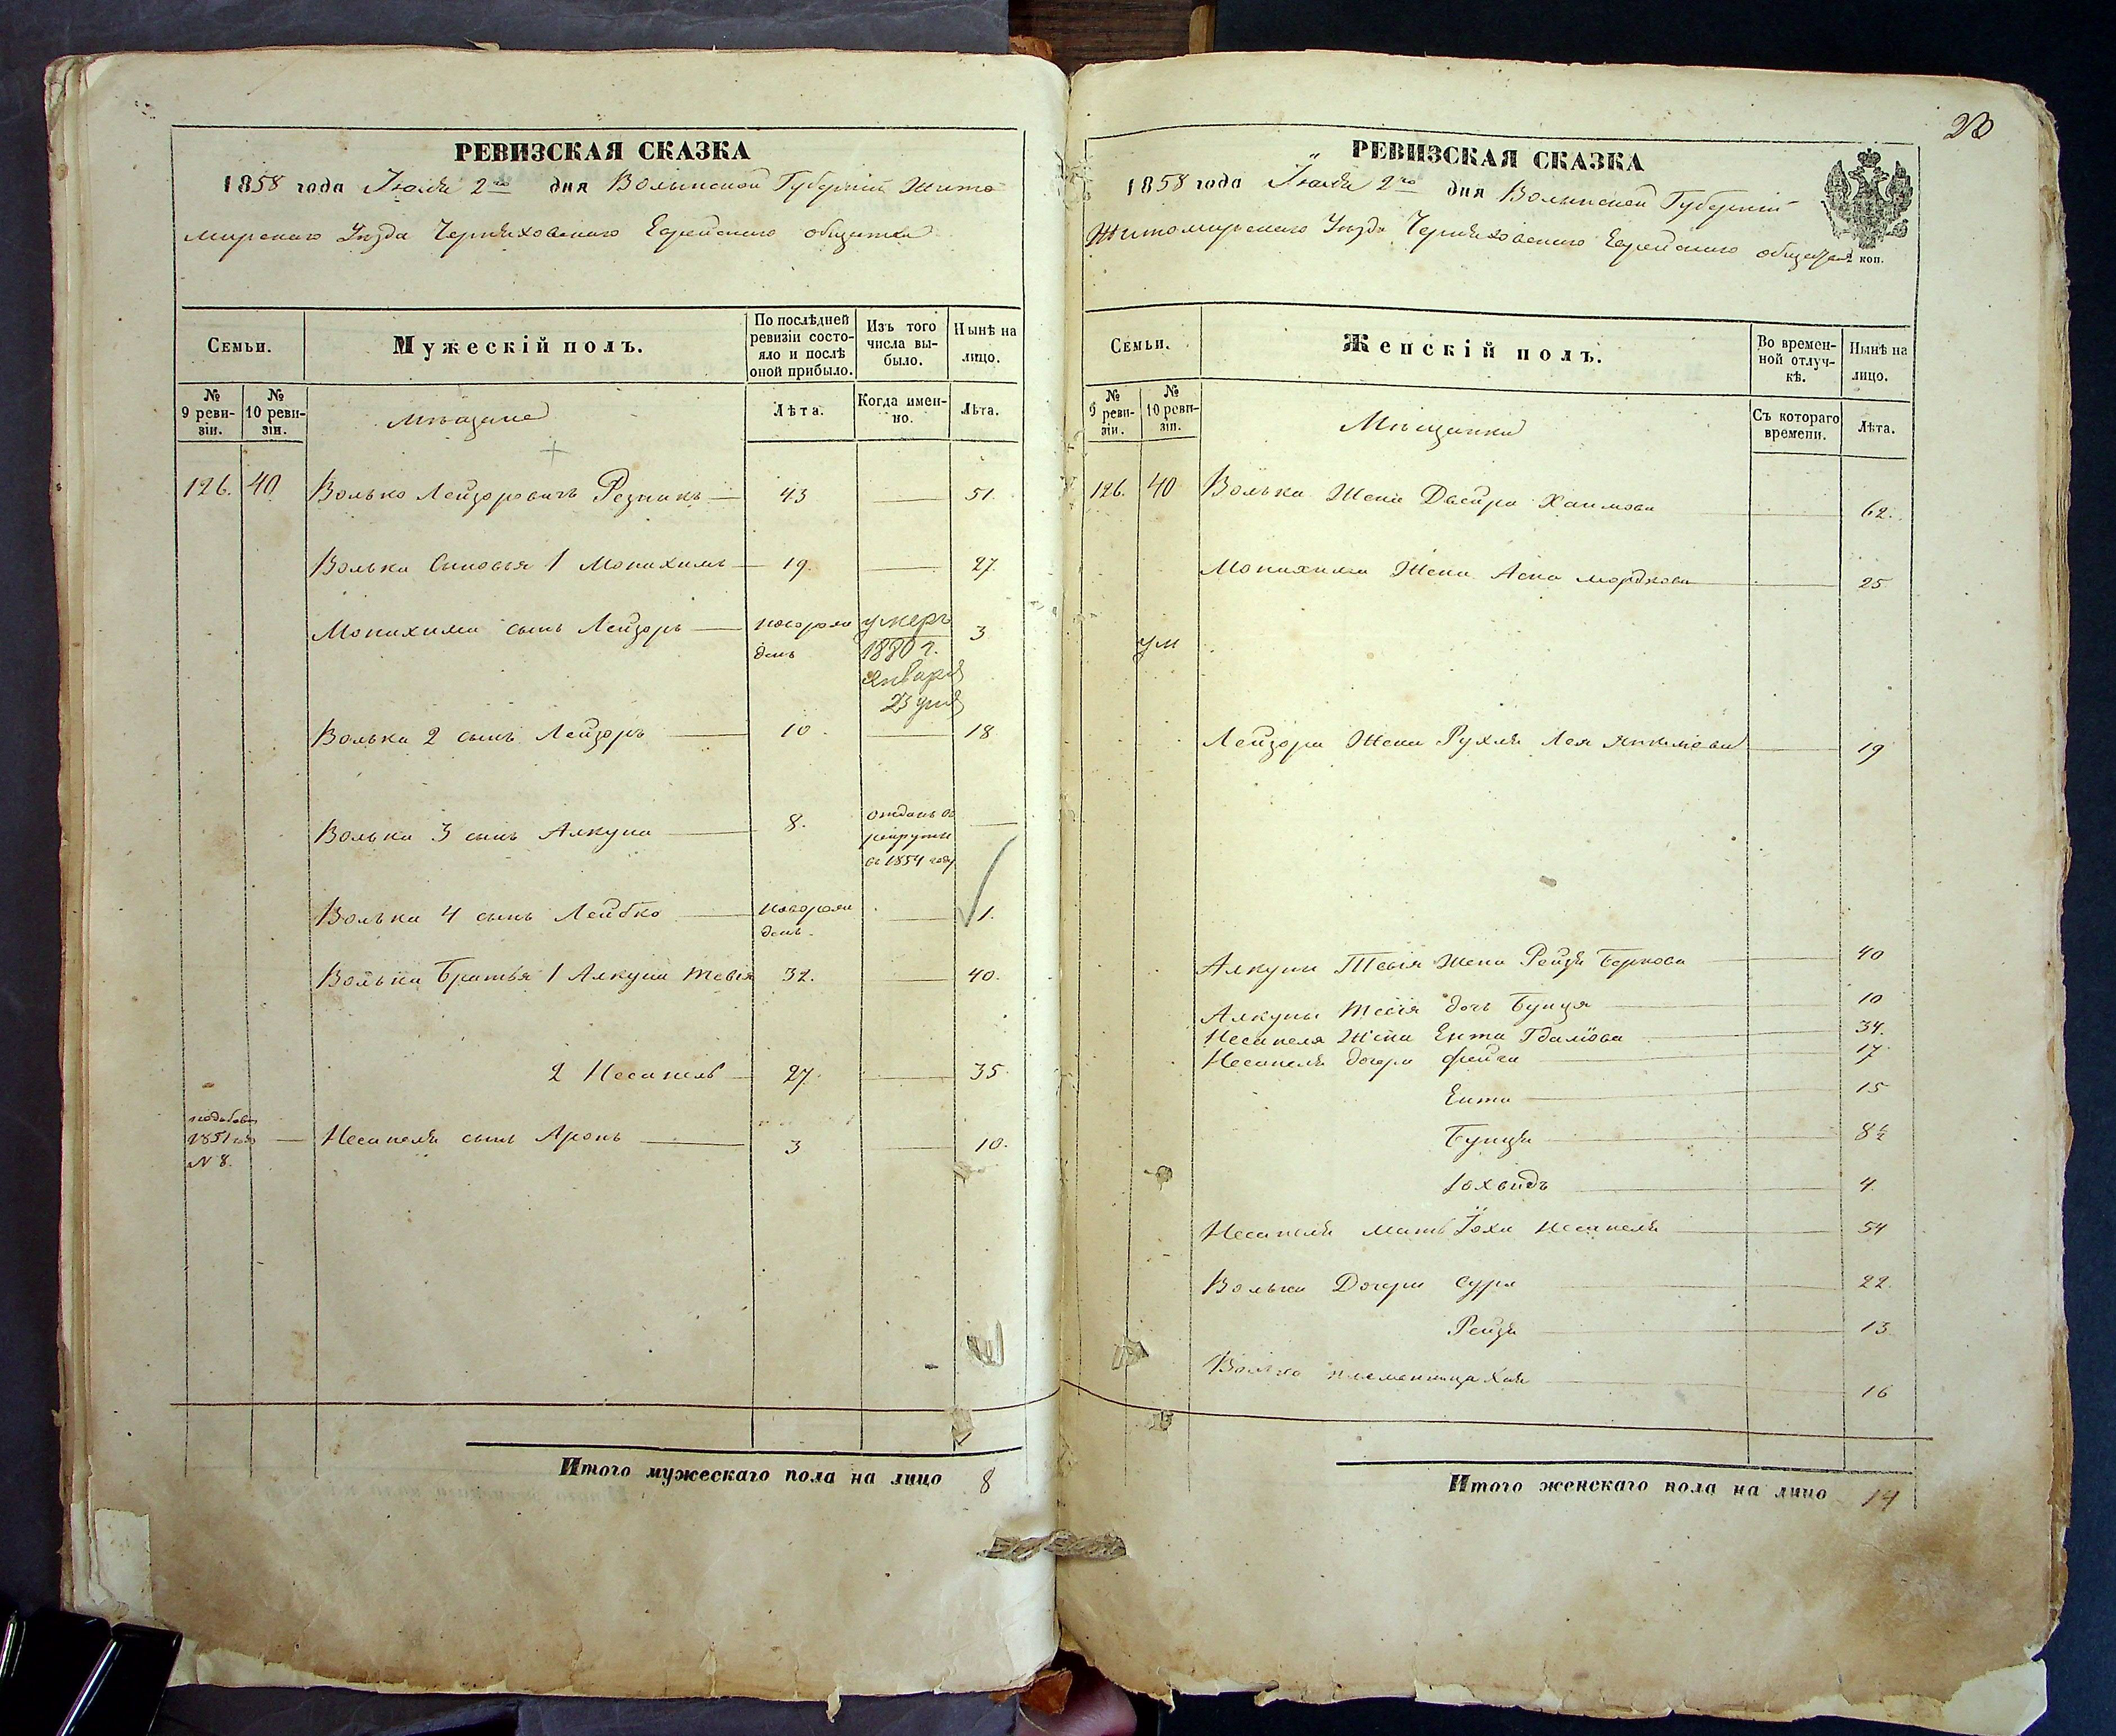 РЕВИЗСКАЯ СКАЗКА
1858 года Июля 2го дня Волынской Губерніи Жито
мирскаго Уѣзда Черняховскаго Еврейскаго общества
Семьи.
Мужескій полъ.
По послѣдней ревизіи состояло и послѣ оной прибыло.
Изъ того числа выбыло.
Нынѣ на лицо.
№ 9 ревизіи.
№ 10 ревизіи.
Мѣщане
Лѣта.
Когда именно.
Лѣта.
126. 40 Волько Лейзоровичъ Резникъ 43 51.
Волька Сыновья 1 Монихимъ 19. 27.
Монихима сынъ Лейзоръ новорож 3
денъ
умеръ
1880 г.
Января
23 дня
Волька 2 сынъ Лейзоръ 10. 18
Волька 3 сынъ Алкуна 8.
отданъ въ
рекруты
въ 1854 году
Волька 4 сынъ Лейбко новорож 1.
денъ
Волька Братья 1 Алкуна Тевія 32. 40.
2 Несанель 27. 35
1851
№ 8.
Несанеля сынъ Аронъ 3 10.
Итого мужескаго пола на лицо 8
РЕВИЗСКАЯ СКАЗКА
1858 года Июля 2го дня Волынской Губерніи
Житомирскаго Уѣзда Черняховскаго Еврейскаго общества
коп.
Семьи.
Женскій полъ.
Во временной отлучкѣ.
Нынѣ на лицо.
№ 9 ревизіи.
№ 10 ревизіи.
Мѣщанки
Съ котораго времени.
Лѣта.
126. 40 Волька Жена Двейра Хаимова 62.
Монихима Жена Асна Мордкова 25
ум
Лейзора Жена Рухля Лея 19
Алкуны Тевія Жена Рейзя Беркова 40
Алкуны Тевія дочь Бунця 10
Несанеля Жена Ента Гдаліова 34.
Несанеля дочери Фейга 17
Ента 15
Бунця 8½
Іохвидъ 4.
Несанеля мать Іоха Несанеля 54
Волька Дочери Сура 22.
Рейзя 13
Волько племянница Хая 16
Итого женскаго пола на лицо 14